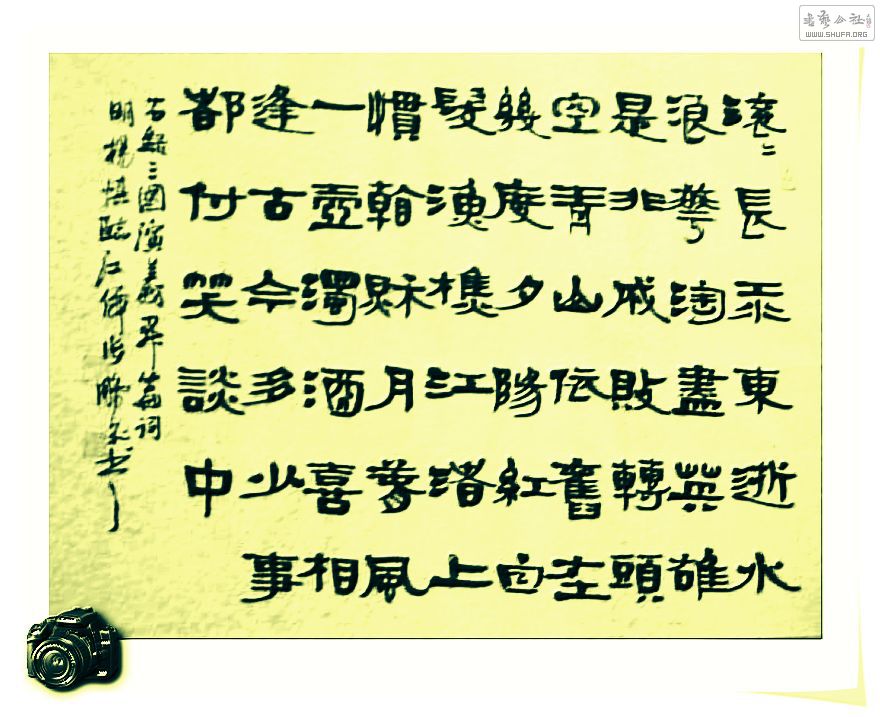 滾〻長江東逝水
浪華淘盡英雄
是非成敗轉頭
空青山依舊在
幾度夕陽紅白
髮漁樵江渚上
慣看秋月春風
一壺濁酒喜相
逢古今多少事
都付笑談中
右錄三國演義開篇詞
明楊慎臨江仙書
書藝公社
WWW.SHUFA.ORG